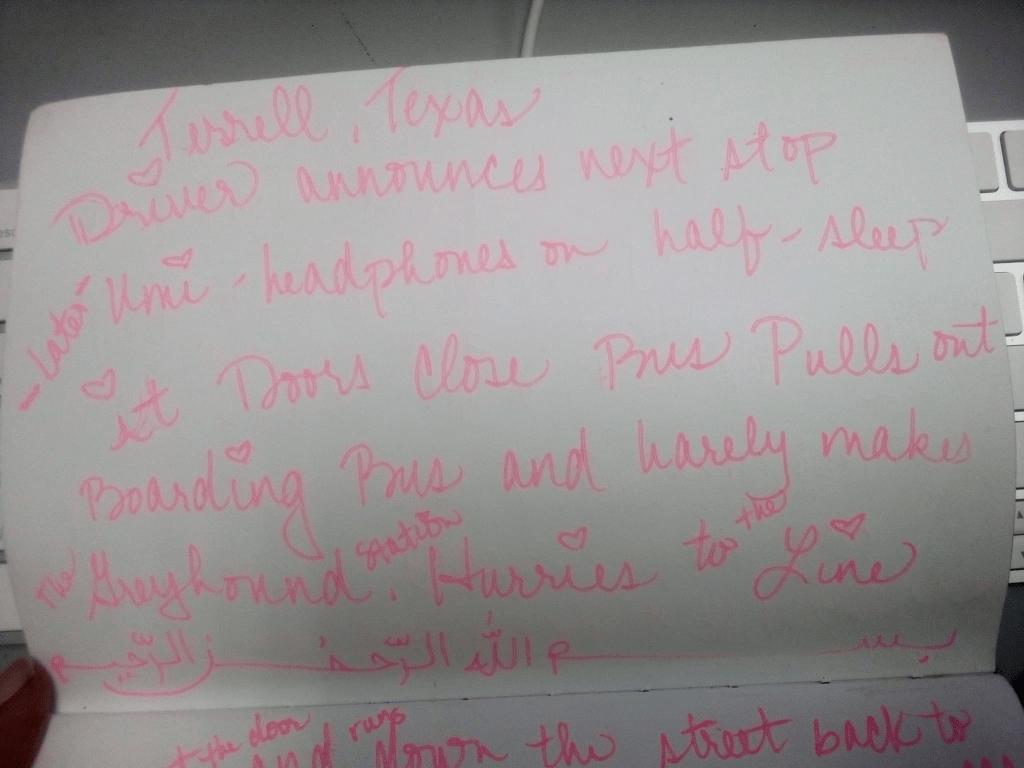 Terrell, Texas
Driver announces next stop
-Later- Umi - headphones on half-sleep
it Doors Close Bus Pulls out
Boarding Bus and barely makes
The Greyhound station. Hurries to the Line
بسم الله الرّحمٰن الرّحيم
t the door and runs down the street back to